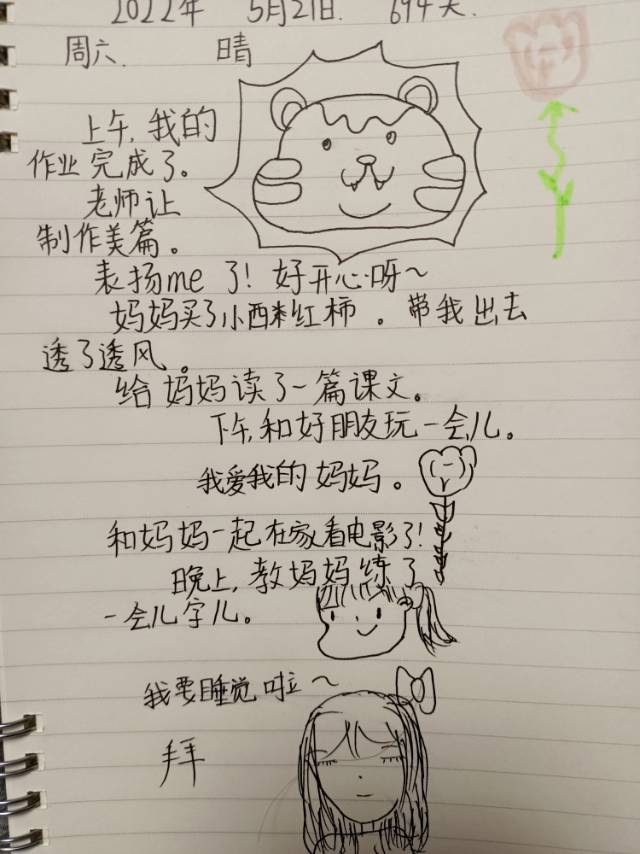 2022年 5月21日. 694天.
周六. 晴
上午, 我的
作业完成了。
老师让
制作美篇。
表扬me了！好开心呀~
妈妈买了小西红柿。带我出去
透了透风。
给妈妈读了一篇课文。
下午, 和好朋友玩一会儿。
我爱我的妈妈。
和妈妈一起在家看电影了！
晚上, 教妈妈练了
一会儿字儿。
我要睡觉啦~
拜